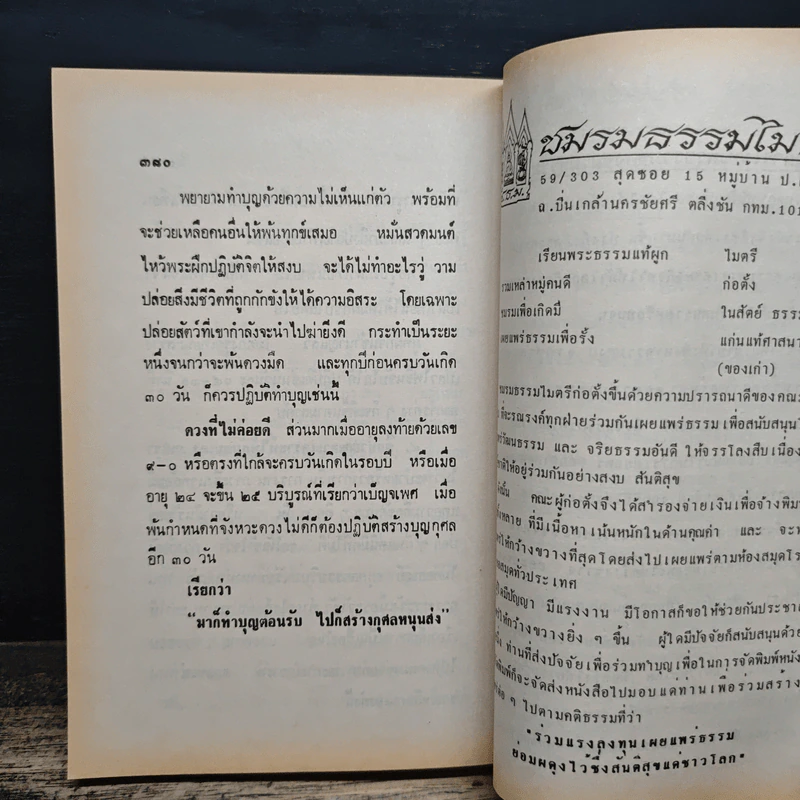 ๓๘๐
พยายามทำบุญด้วยความไม่เห็นแก่ตัว พร้อมที่
จะช่วยเหลือคนอื่นให้พ้นทุกข์เสมอ หมั่นสวดมนต์
ไหว้พระฝึกปฏิบัติจิตให้สงบ จะได้ไม่ทำอะไรวู่ วาม
ปล่อยสิ่งมีชีวิตที่ถูกกักขังให้ได้ความอิสระ โดยเฉพาะ
ปล่อยสัตว์ที่เขากำลังจะนำไปฆ่ายิ่งดี กระทำเป็นระยะ
หนึ่งจนกว่าจะพ้นดวงมืด และทุกปีก่อนครบวันเกิด
๓๐ วัน ก็ควรปฏิบัติทำบุญเช่นนี้
ดวงที่ไม่ค่อยดี ส่วนมากเมื่ออายุลงท้ายด้วยเลข
๙-๐ หรือตรงที่ใกล้จะครบวันเกิดในรอบปี หรือเมื่อ
อายุ ๒๔ จะขึ้น ๒๕ บริบูรณ์ที่เรียกว่าเบ็ญจเพศ เมื่อ
พ้นกำหนดที่จังหวะดวงไม่ดีก็ต้องปฏิบัติสร้างบุญกุศล
อีก ๓๐ วัน
เรียกว่า
“มาก็ทำบุญต้อนรับ ไปก็สร้างกุศลหนุนส่ง”
ชมรมธรรมไม
ช.ธ.ม.
59/303 สุดซอย 15 หมู่บ้าน ป.
ถ.ปิ่นเกล้านครชัยศรี ตลิ่งชัน กทม.
เรียนพระธรรมแท้ผูก ไมตรี
รวมเหล่าหมู่คนดี ก่อตั้ง
ชมรมเพื่อเกิดมี ในสัตย์ ธรรม
เผยแพร่ธรรมเพื่อรั้ง แก่นแท้ศาสนา
(ของเก่า)
ชมรมธรรมไมตรีก่อตั้งขึ้นด้วยความปรารถนาดีของคณะ
ที่จะรณรงค์ทุกฝ่ายร่วมกันเผยแพร่ธรรม เพื่อสนับสนุน
วัฒนธรรม และ จริยธรรมอันดี ให้จรรโลงสืบเนื่อง
ให้อยู่ร่วมกันอย่างสงบ สันติสุข
ดังนั้น คณะผู้ก่อตั้งจึงได้สำรองจ่ายเงินเพื่อจ้างพิมพ์
ที่มีเนื้อหา เน้นหนักในด้านคุณค่า และ
ให้กว้างขวางที่สุด โดยส่งไป เผยแพร่ตามห้องสมุด
สมุดทั่วประเทศ
มีปัญญา มีแรงงาน มีโอกาสก็ขอให้ช่วยกัน
ให้กว้างขวางยิ่ง ๆ ขึ้น ผู้ใดมีปัจจัยก็สนับสนุนด้วย
ท่านที่ส่งปัจจัย เพื่อร่วมทำบุญ เพื่อในการจัดพิมพ์หนัง
พิมพ์ก็จะจัดส่งหนังสือไปมอบแด่ท่าน เพื่อร่วมสร้าง
ๆ ไปตามคติธรรมที่ว่า
"ร่วมแรงลงทุนเผยแพร่ธรรม
ย่อมผดุงไว้ซึ่งสันติสุขแด่ชาวโลก"